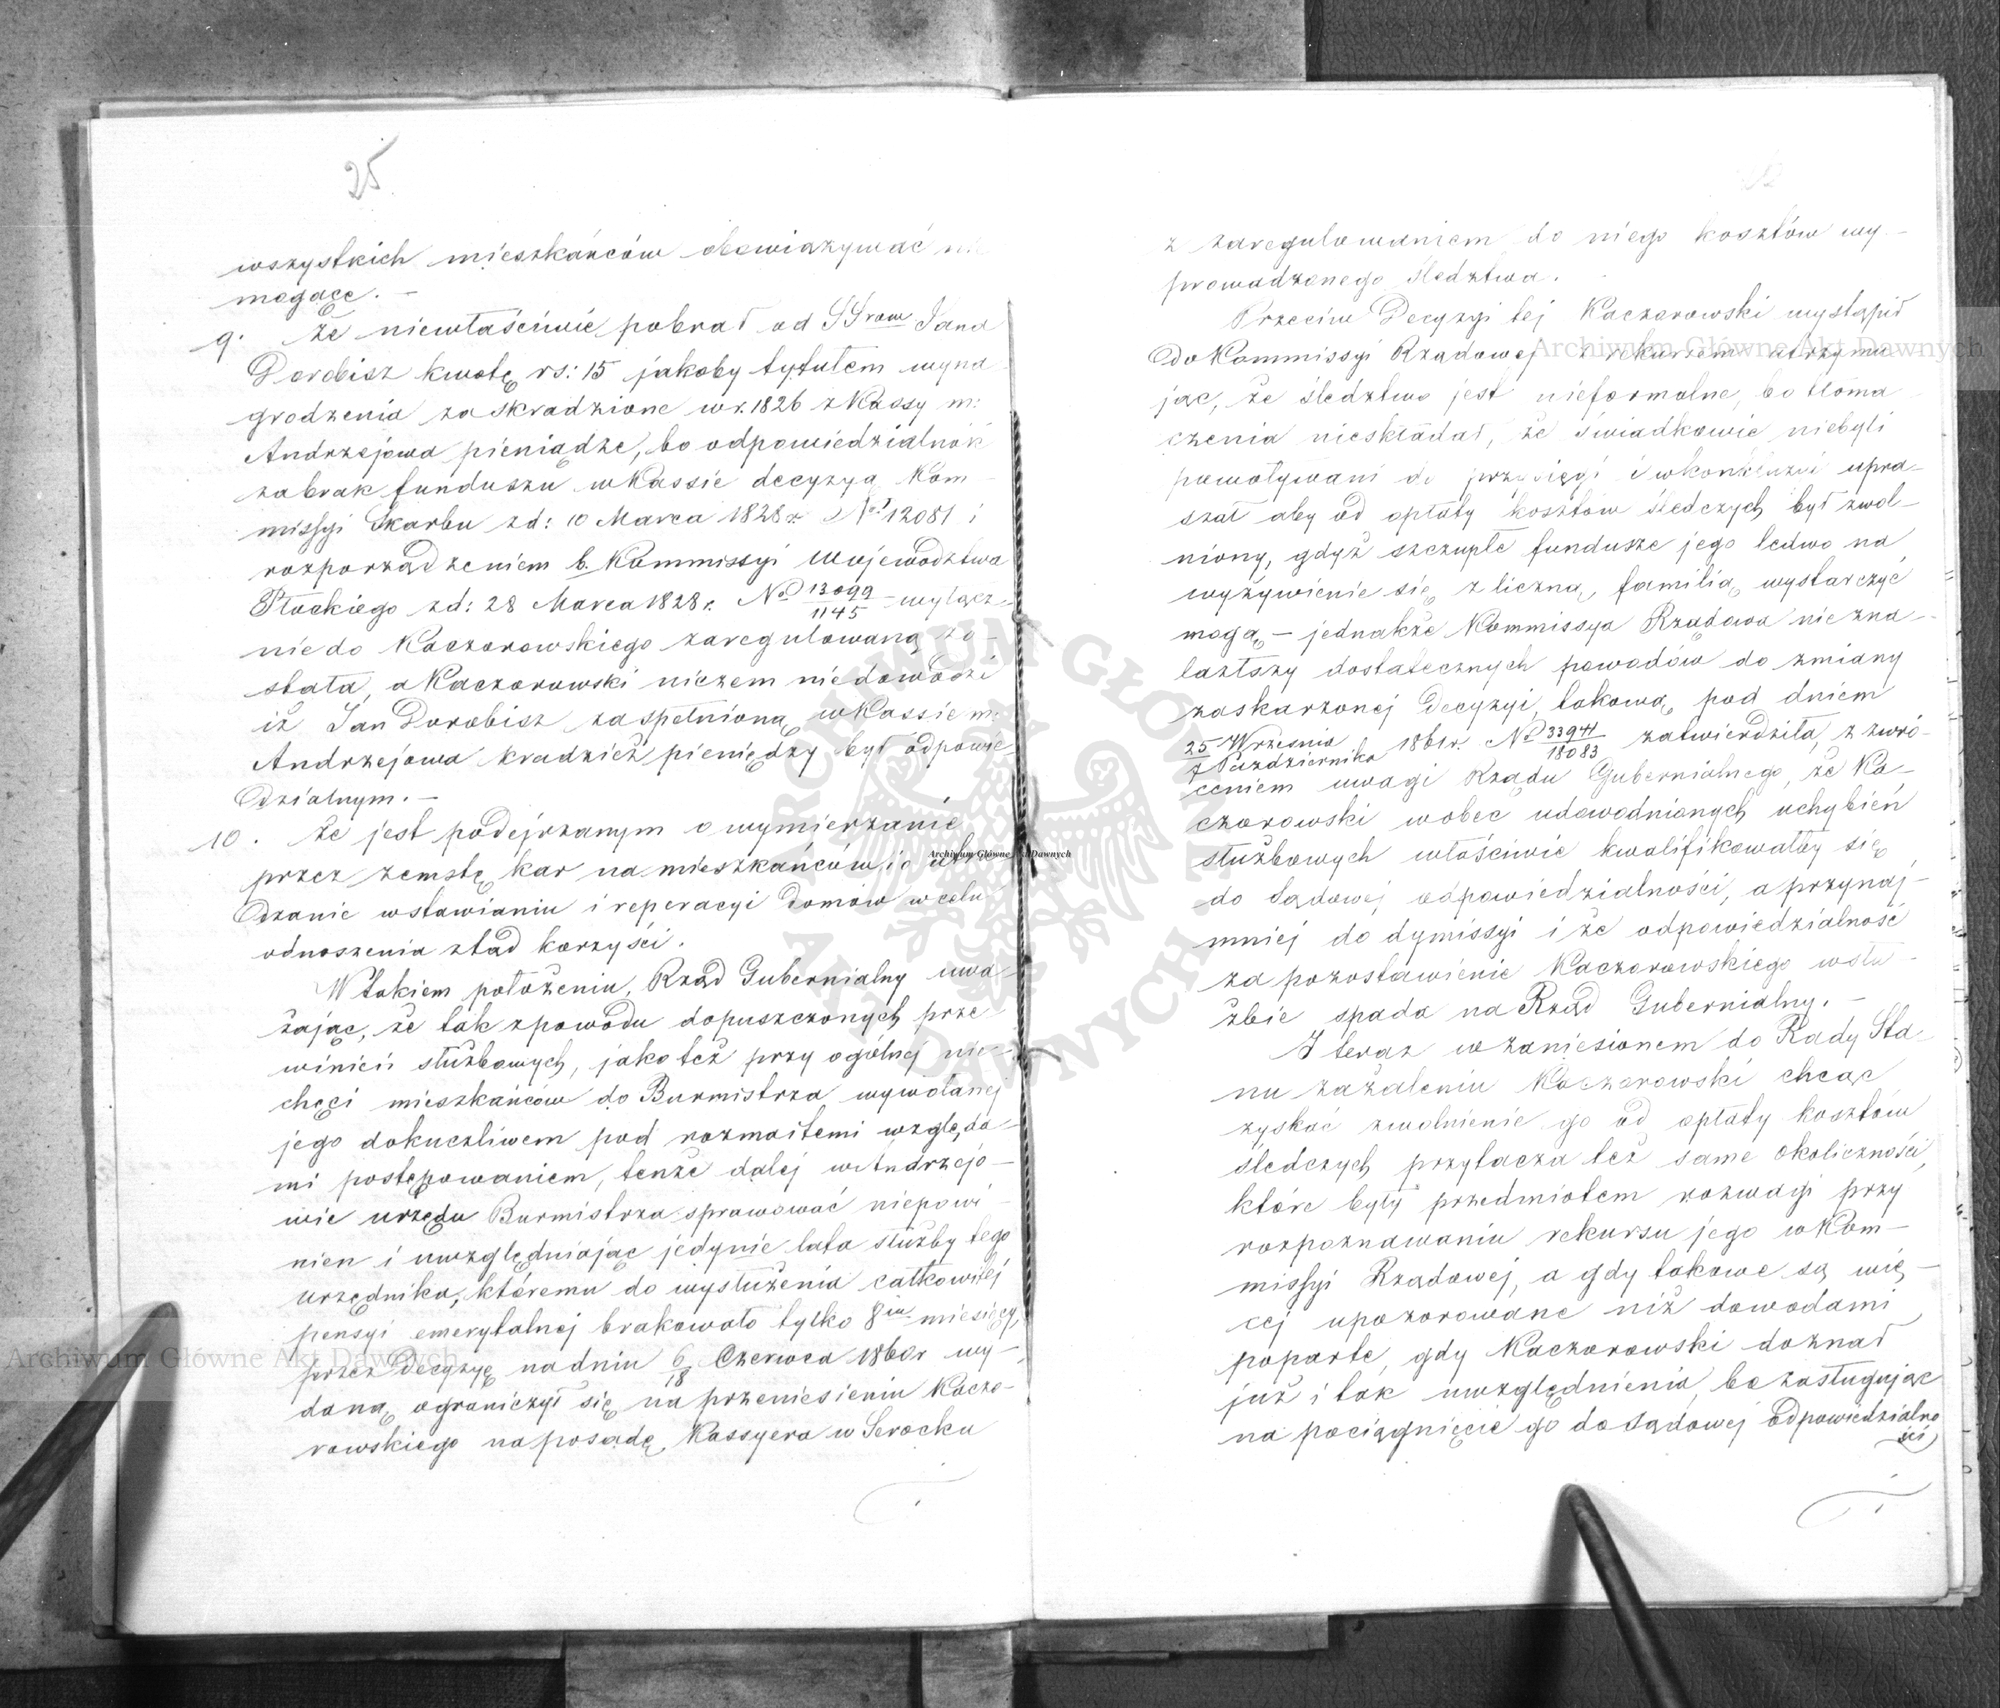 25
wszystkich mieszkańców obowiązywać
mogące. –
9. Że niewłaściwie pobrał od SSrow Jana
Dorobisz kwotę rs: 15 jakoby tytułem wyna
grodzenia za skradzione w r. 1826 z Kassy m:
Andrzejowa pieniądze, bo odpowiedzialność
za brak funduszu w Kassie decyzyą Kom
missyi Skarbu z d: 10 Marca 1828 r. No 12081 i
rozporządzeniem b. Kommissyi Województwa
Płockiego z d: 28 Marca 1828 r. No 13099/1145 – wyłącz-
nie do Kaczorowskiego zaregulowaną zo-
stała, a Kaczorowski niczem niedowodzi
iż Jan Dorobisz za spełnioną w Kassie m:
Andrzejowa kradzież pieniędzy był odpowie
dzialnym. –
10. Że jest podejrzanym o wymierzanie
przez zemstę kar na mieszkańców i o
dzanie w stawianiu i reperacyi domów w celu
odnoszenia ztąd korzyści.
W takiem położeniu, Rząd Gubernialny uwa-
żając, że tak z powodu dopuszczonych prze-
winień służbowych, jako też przy ogólnej nie-
chęci mieszkańców do Burmistrza wywołanej
jego dokuczliwem pod rozmaitemi względa-
mi postępowaniem, tenże dalej w Andrzejo-
wie urzędu Burmistrza sprawować niepowi-
nien i uwzględniając jedynie lata służby tego
urzędnika, któremu do wysłużenia całkowitej
pensyi emerytalnej brakowało tylko 8iu miesięcy,
przez Decyzyę na dniu 6/18 Czerwca 1860 r wy-
daną ograniczył się na przeniesieniu Kaczo-
rowskiego na posadę Kassyera w Serocku
z zaregulowaniem do niego kosztów wy-
prowadzonego śledztwa.
Przeciw Decyzyi tej Kaczorowski wystąpił
do Kommissyi Rządowej z rekursem utrzymu
jąc, że śledztwo jest nieformalne, bo tłoma
czenia nieskładał, że świadkowie niebyli
powoływani do przysięgi i w konkluzii upra-
szał aby od opłaty kosztów śledczych był zwol-
niony, gdyż szczupłe fundusze jego ledwo na
wyżywienie się z liczną familią wystarczyć
mogą – jednakże Kommissya Rządowa nie zna-
lazłszy dostatecznych powodów do zmiany
zaskarżonej Decyzyi, takową pod dniem
25 Września/7 Października 1861 r. No 33944/18083 zatwierdziła, z zwró-
ceniem uwagi Rządu Gubernialnego, że Ka-
czorowski wobec udowodnionych uchybień
służbowych właściwie kwalifikowałby się
do Sądowej odpowiedzialności, a przynaj-
mniej do dymissyi i że odpowiedzialność
za pozostawienie Kaczorowskiego w słu-
żbie spada na Rząd Gubernialny. –
I teraz w zaniesionem do Rady Sta-
nu zażaleniu Kaczorowski chcąc
zyskać zwolnienie go od opłaty kosztów
śledczych przytacza też same okoliczności,
które były przedmiotem rozwagi przy
rozpoznawaniu rekursu jego w Kom-
missyi Rządowej, a gdy takowe są wię-
cej upozorowane niż dowodami
poparte, gdy Kaczorowski doznał
już i tak uwzględnienia, bo zasługując
na pociągnięcie go do Sądowej odpowiedzialno
ści
Archiwum Główne Akt Dawnych
Archiwum Główne Akt Dawnych
Archiwum Główne Akt Dawnych
ARCHIWUM GŁÓWNE AKT DAWNYCH